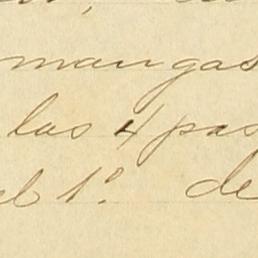 mangas
las 4 pas
el 1º. de